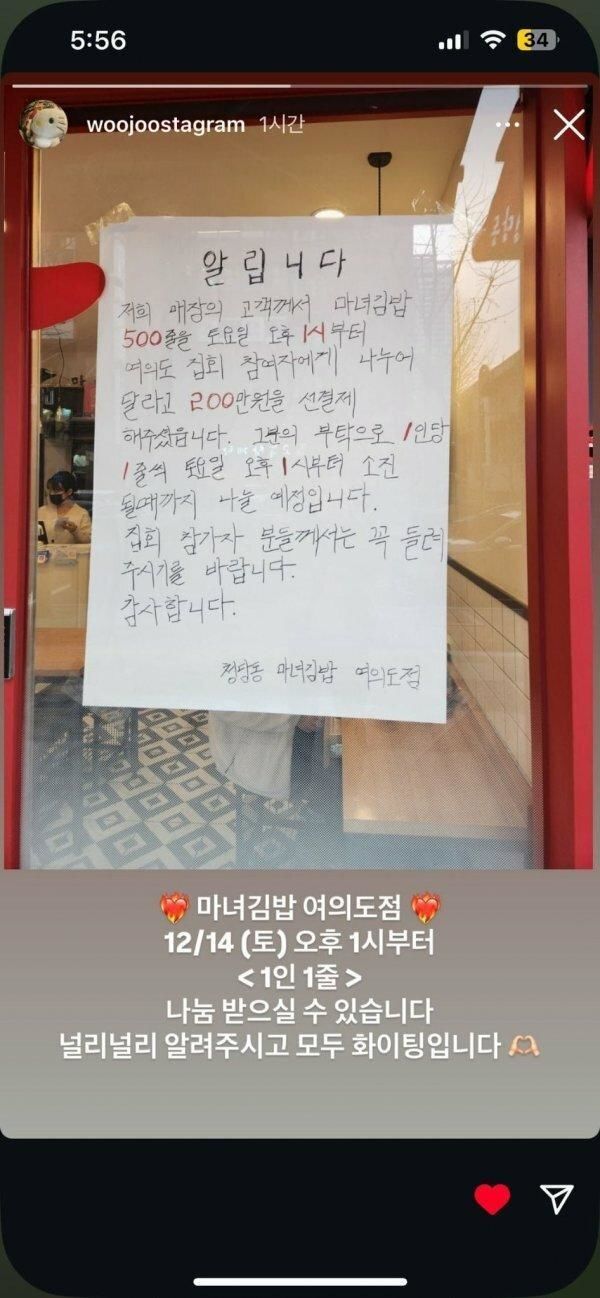 5:56
34
woojoostagram 1시간
알립니다
저희 매장의 고객께서 마녀김밥
500줄을 토요일 오후 1시부터
여의도 집회 참여자에게 나누어
달라고 200만원을 선결제
해주셨습니다. 그분의 부탁으로 1인당
1줄씩 토요일 오후 1시부터 소진
될때까지 나눌 예정입니다.
집회 참가자 분들께서는 꼭 들려
주시기를 바랍니다.
감사합니다.
청담동 마녀김밥 여의도점
마녀김밥 여의도점
12/14 (토) 오후 1시부터
<1인 1줄>
나눔 받으실 수 있습니다
널리널리 알려주시고 모두 화이팅입니다